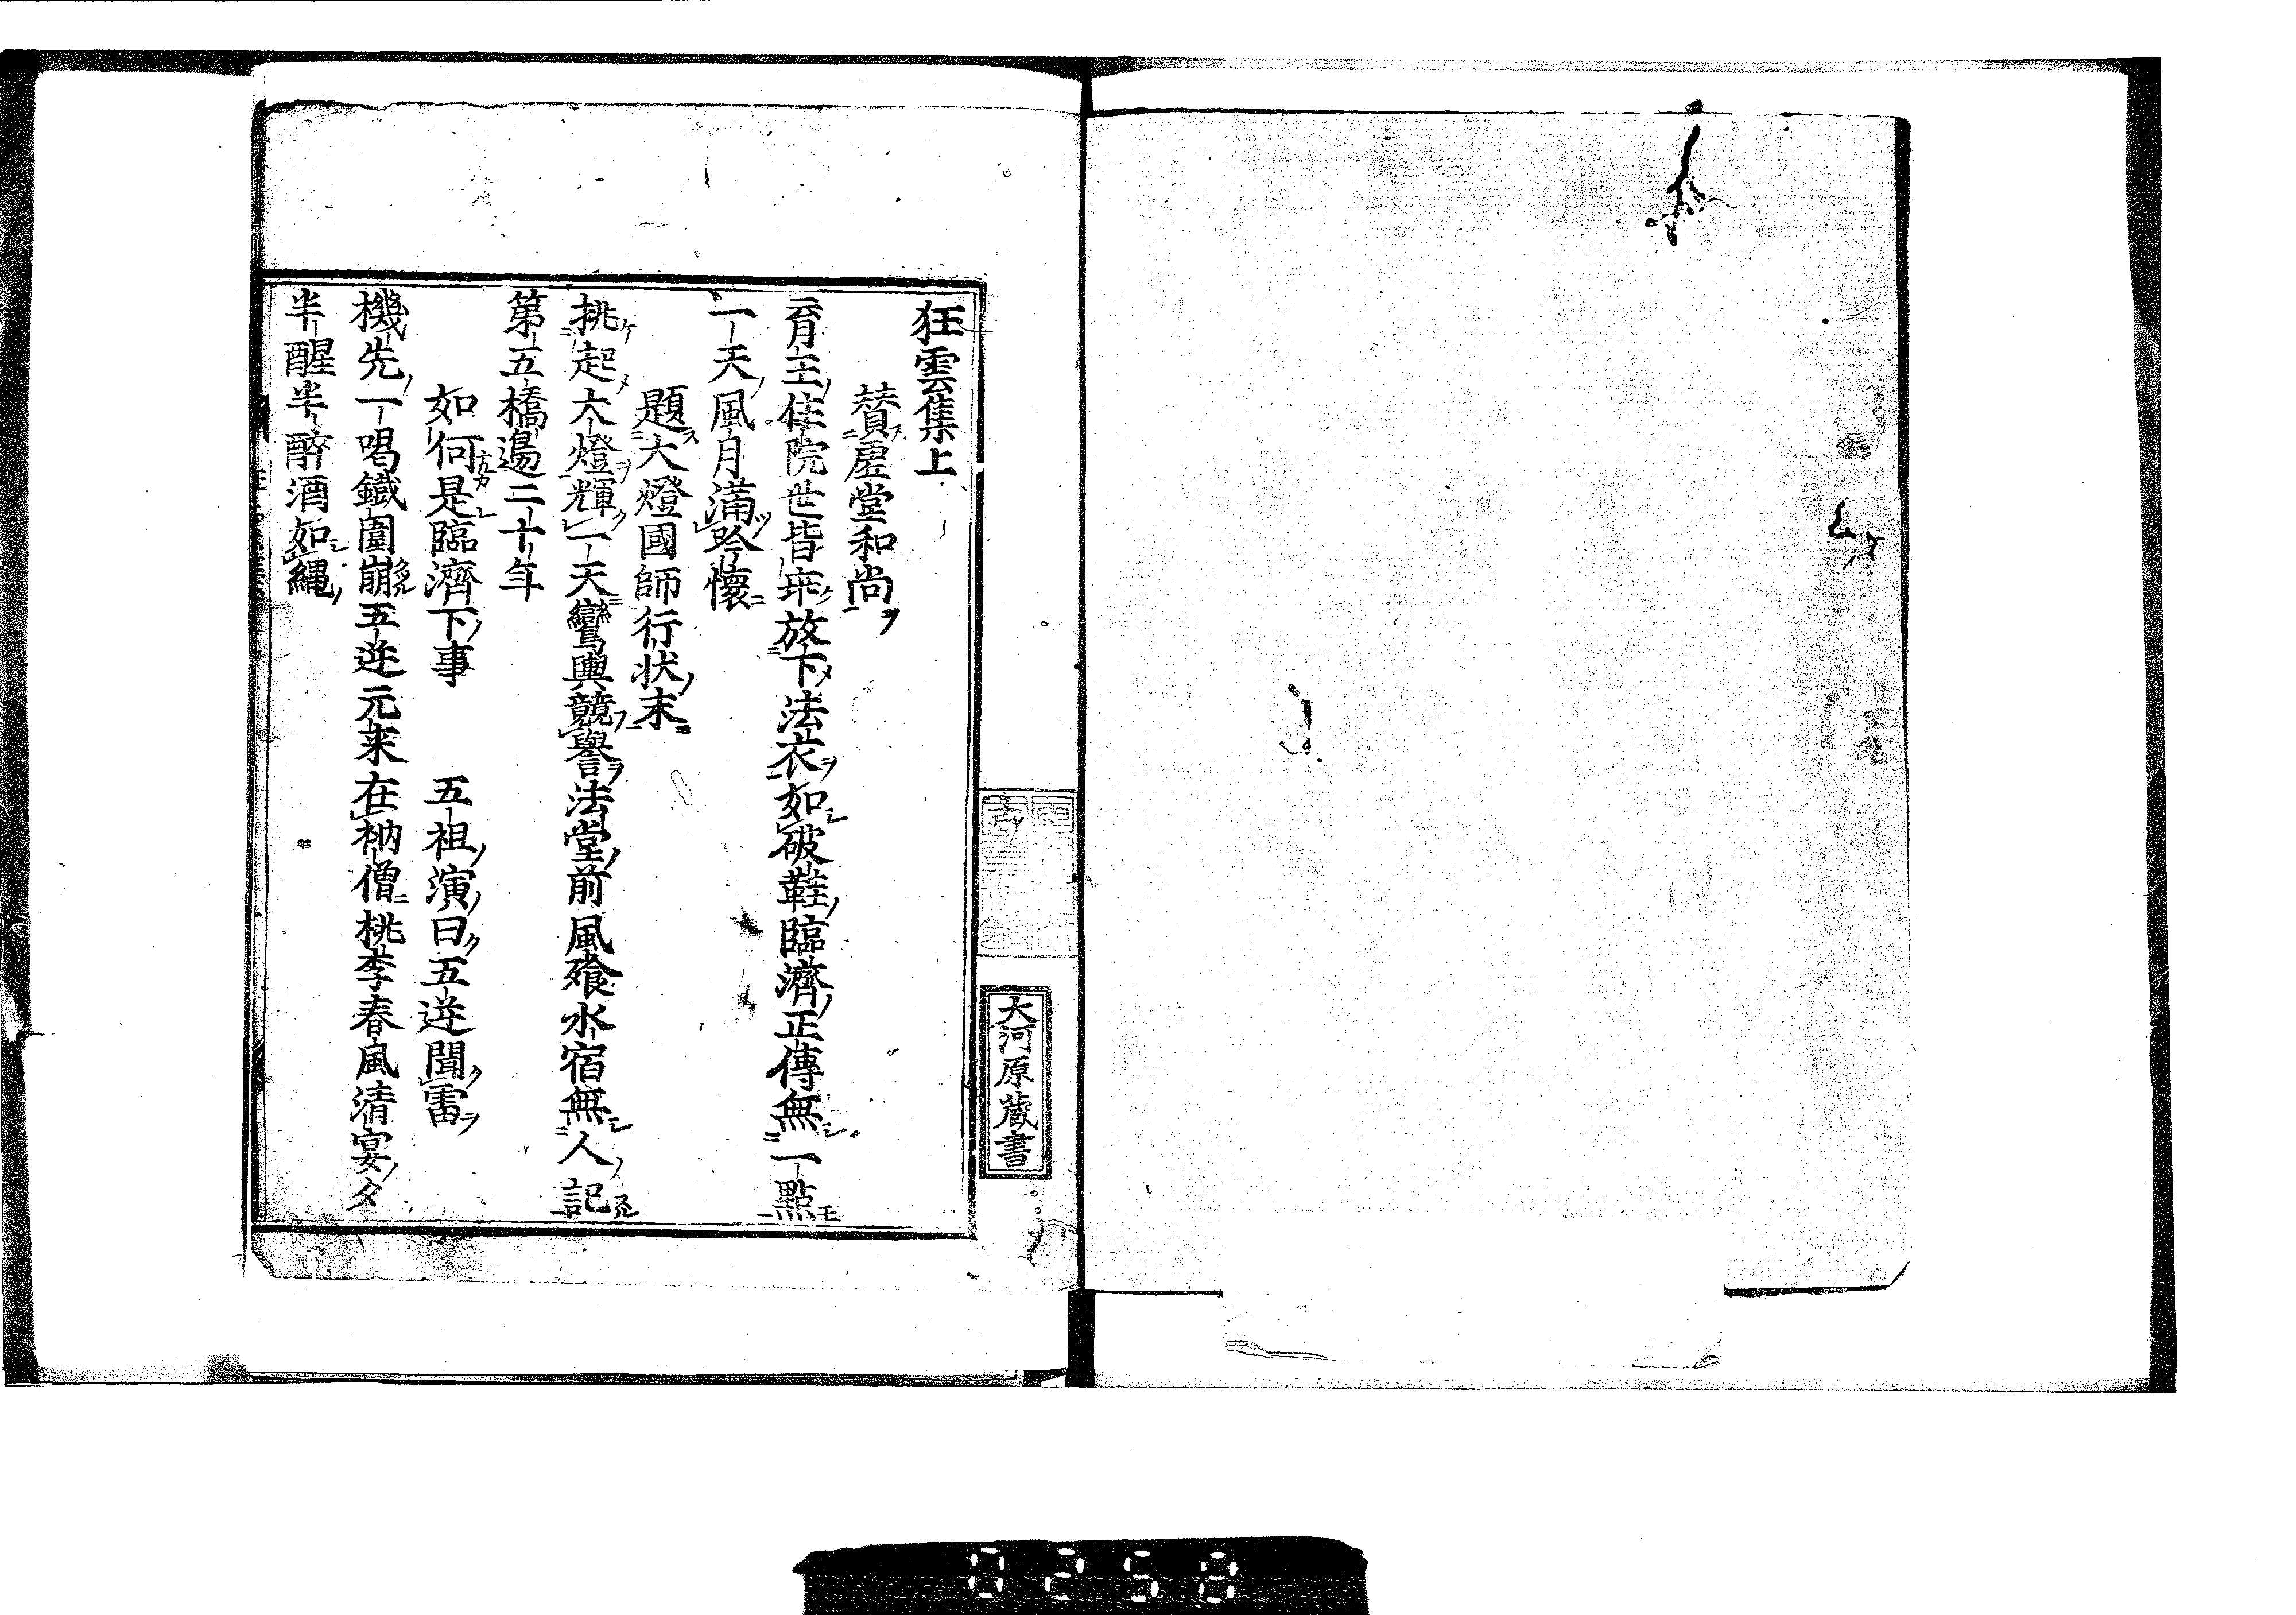 狂雲集上
賛虚堂和尚
育王住院世皆乖放下法衣如破鞋臨濟正傳無一點
一天風月滿吟懷
題大燈國師行状末
挑起大燈輝一天鸞輿競譽法堂前風飡水宿無人記
第五橋邊二十年
如何是臨濟下事　五祖演曰五逆聞雷
機先一喝鐵圍崩五逆元来在衲僧桃李春風清宴夕
半醒半醉酒如縄
大河原蔵書
0258